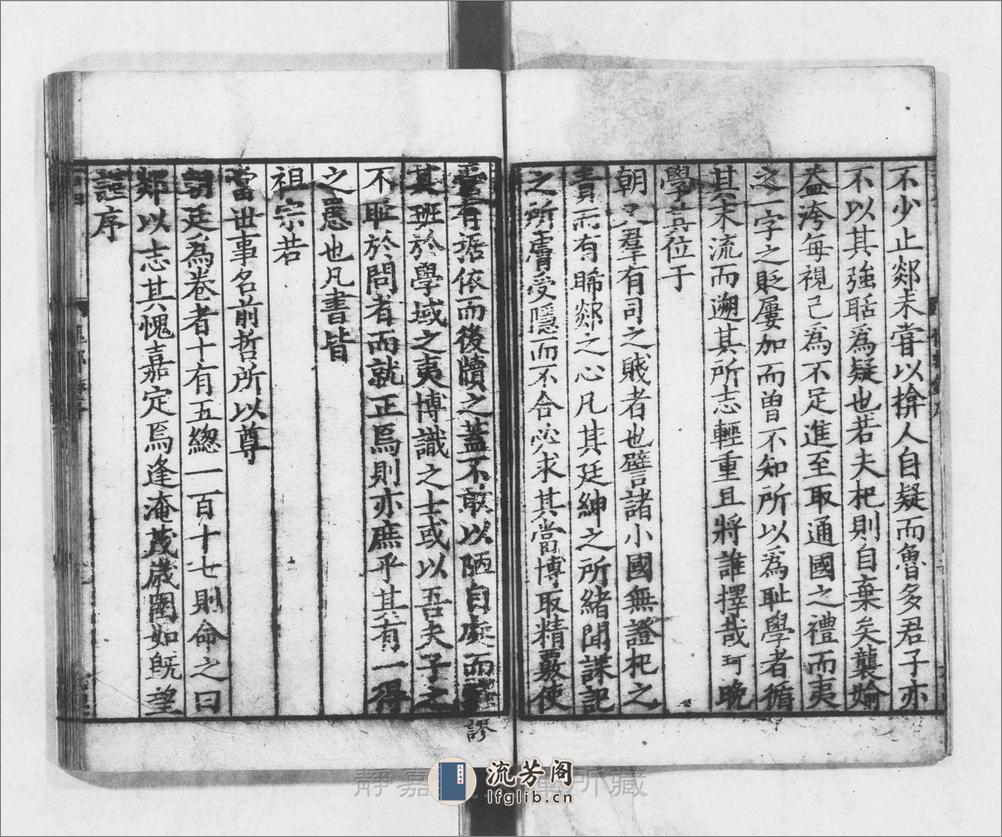 不少止郯未嘗以揜人自疑而魯多君子亦
不以其強聒爲疑也若夫杞則自棄矣襲婾
益洿每視己爲不足進至取通國之禮而夷
之一字之貶屢加而曾不知所以爲恥學者循
其末流而遡其所志輕重且將誰擇哉珂晚
學具位于
朝又羣有司之賤者也譬諸小國無證杞之
責而有晞郯之心凡其廷紳之所緒聞諜記
之所膚受隱而不合必求其當博取精覈使
有据依而後牘之蓋不敢以陋自處而謬
其班於學域之夷博識之士或以吾夫子之
不恥於問者而就正焉則亦庶乎其有一得
之愚也凡書皆
祖宗若
當世事名前哲所以尊
朝廷為卷者十有五總一百十七則命之曰
郯以志其愧嘉定焉逢淹茂歲圉如既望
謹序
流芳阁
lfglib.cn